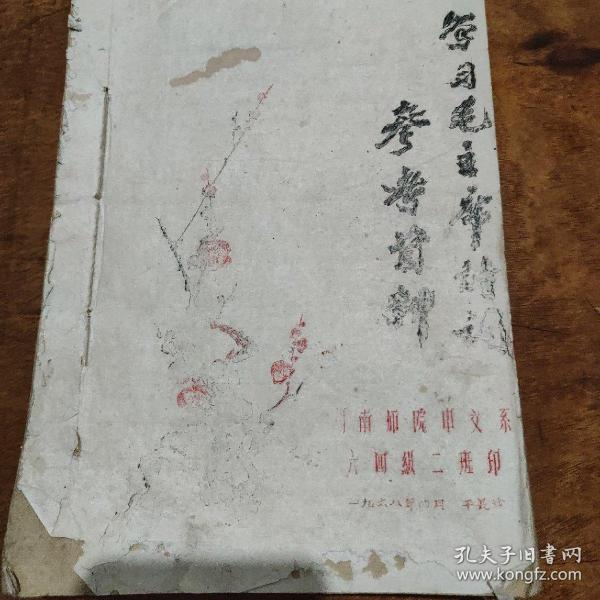 学习毛主席诗词
参考资料
湖南师院中文系
六四级二班印
一九六八年四月 于长沙
孔夫子旧书网
www.kongfz.com